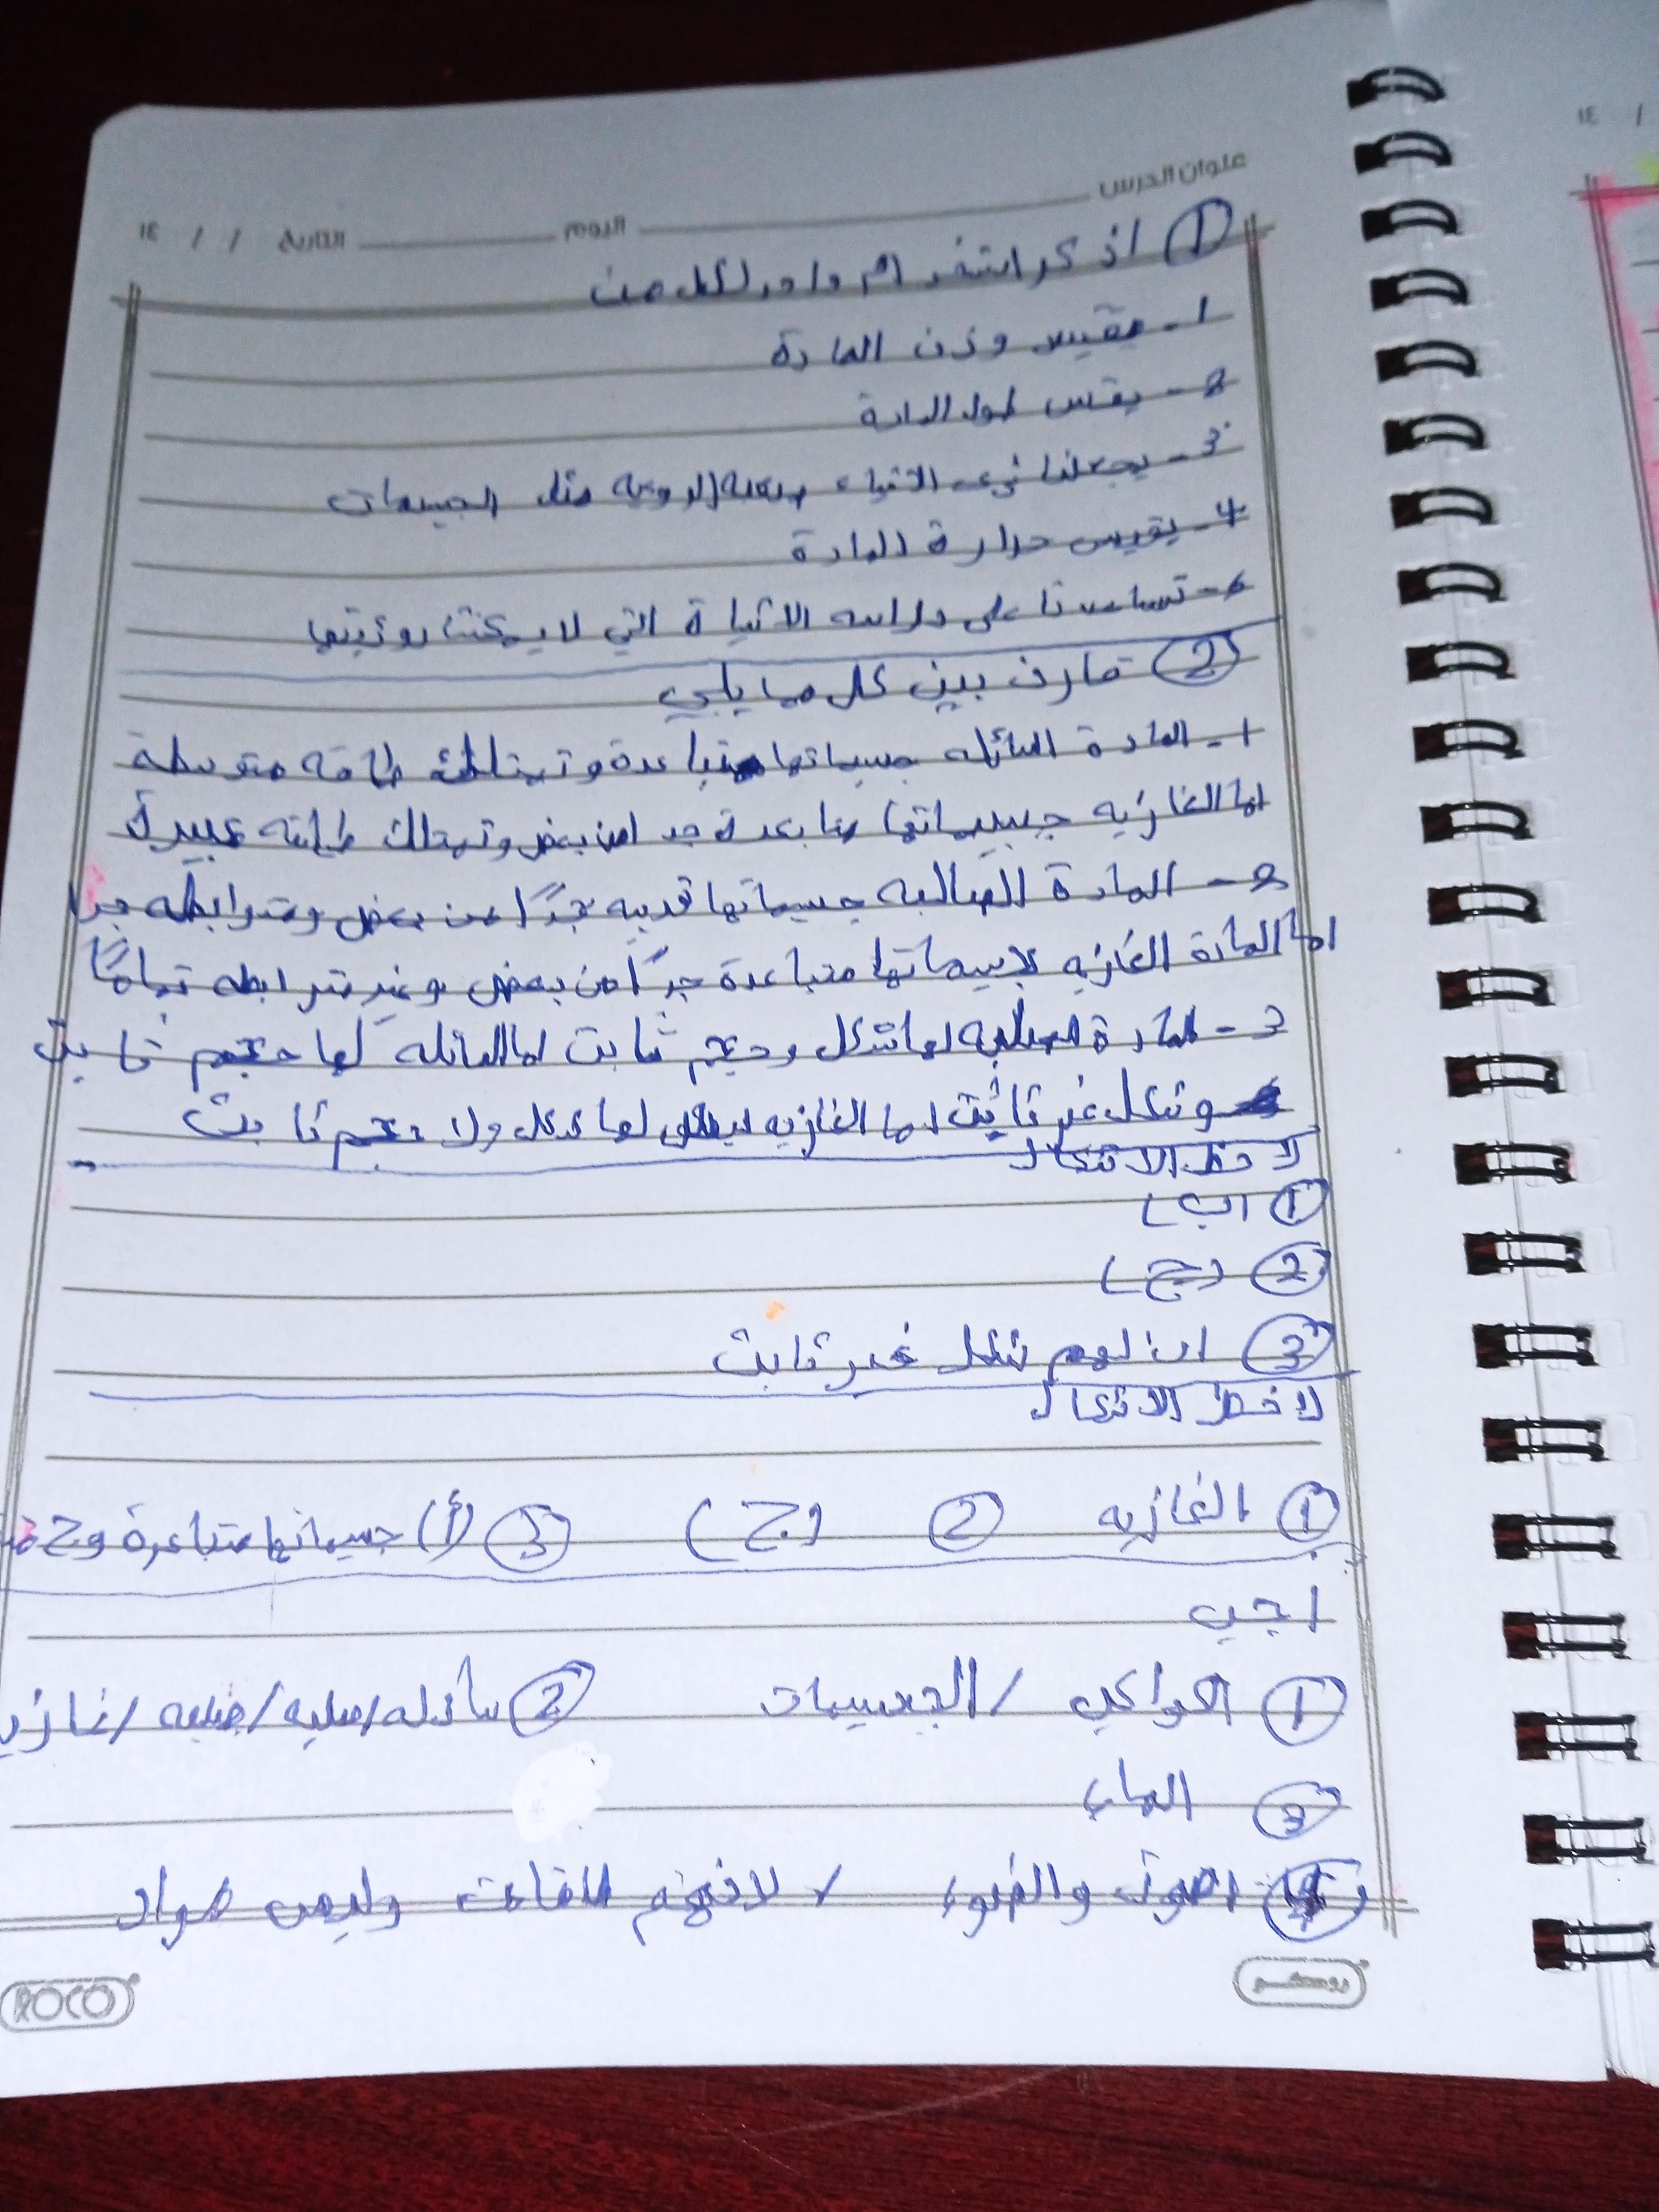 عنوان الدرس
اليوم التاريخ / / ١٤
① اذكر استخدام واحد لكل من
1- يقيس وزن المادة
2- يقس طول المادة
3- يجعلنا نرى الاشياء الرويه مثل الجسيمات
4- يقيس حرارة المادة
6- تساعدنا على دراسه الاشياة التي لا يمكننا روئيتها
② قارن بين كل مما يلي
1- المادة السائله جسيماتها متباعدة وتمتلك طاقه متوسطة
اما الغازيه جسيماتها متابعدة جدا من بعض وتمتلك طاقه كبيرة
2- المادة الصالبه جسيماتها قريبه جدًا من بعض ومترابطه جدا
اما المادة الغازيه جسيماتها متباعدة جدًا من بعض وغير مترابطه تمامًا
3- المادة الصلبه لها شكل وحجم ثابت اما السائله لها حجم ثابت
وشكل غير ثابت اما الغازيه ليس لها شكل ولا حجم ثابت
لاحظ الاشكال
① (ب)
② (ج)
③ ان لهم شكل غير ثابت
لاحظ الاشكال
① الغازيه ② (ج) ③ (أ) جسيماتها متباعدة وج
اجب
① الكواكب / الجسيمات ② سائله/صلبه/صلبه/غازيه
③ الماء
④ الصوت والضوء / لانهم طاقات وليس مواد
روكو
ROCO
١٤ /